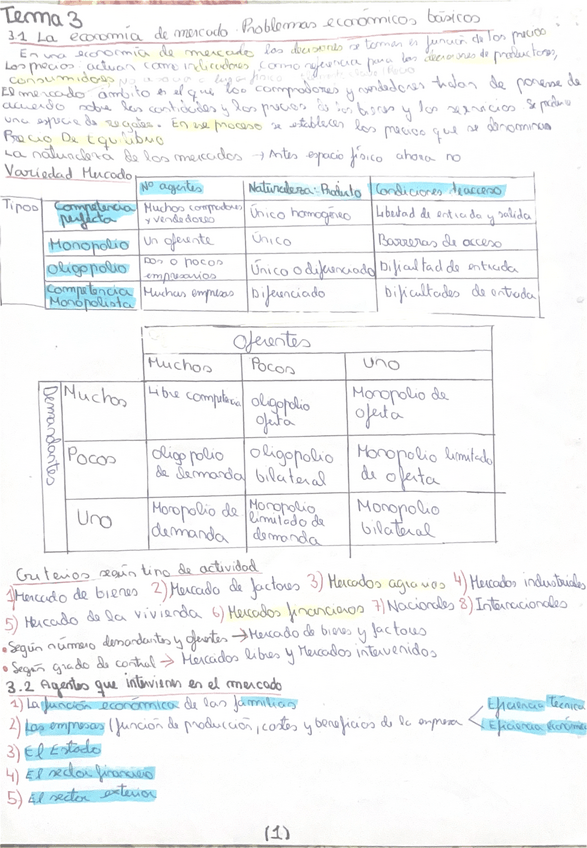 Tema 3
3.1 La economía de mercado. Problemas económicos básicos
En una economía de mercado las decisiones se toman en función de los precios
Los precios actúan como indicadores, como referencia para las decisiones de productores,
consumidores
El mercado ámbito en el que los compradores y vendedores tratan de ponerse de
acuerdo sobre las cantidades y los precios de los bienes y los servicios. Se produce
una especie de . En ese proceso se establecen los precios que se denominan
Precio De Equilibrio
La naturaleza de los mercados → Antes espacio físico ahora no
Variedad Mercado
Nº agentes Naturaleza: Producto Condiciones de acceso
Tipos Competencia perfecta Muchos compradores y vendedores Único homogéneo Libertad de entrada y salida
Monopolio Un oferente Único Barreras de acceso
Oligopolio Dos o pocos empresarios Único o diferenciado Dificultad de entrada
Competencia Monopolista Muchas empresas Diferenciado Dificultades de entrada
Oferentes
Muchos Pocos Uno
Demandantes
Muchos Libre competencia Oligopolio oferta Monopolio de oferta
Pocos Oligopolio de demanda Oligopolio bilateral Monopolio limitado de oferta
Uno Monopolio de demanda Monopolio limitado de demanda Monopolio bilateral
Criterios según tipo de actividad
1) Mercado de bienes 2) Mercado de factores 3) Mercados agrarios 4) Mercados industriales
5) Mercado de la vivienda 6) Mercados financieros 7) Nacionales 8) Internacionales
• Según número demandantes y oferentes → Mercado de bienes y factores
• Según grado de control → Mercados libres y Mercados intervenidos
3.2 Agentes que intervienen en el mercado
1) La función económica de las familias
2) Las empresas (función de producción, costes y beneficios de la empresa Eficiencia técnica
Eficiencia económica
3) El Estado
4) El sector financiero
5) El sector exterior
(1)